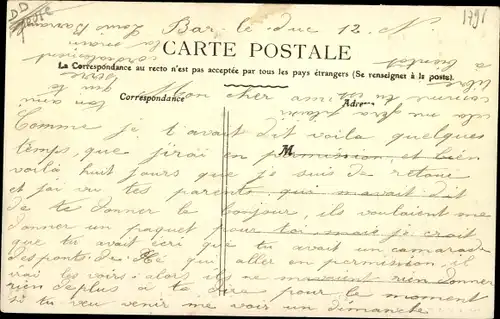 Bar le duc 12 N.
1791
CARTE POSTALE
La Correspondance au recto n'est pas acceptée par tous les pays étrangers (Se renseigner à la poste).
Correspondance
Adresse
M
Mon cher ami
Comme je t'avait dit voila quelques
temps, que j'irai en permission, et bien
voilà huit jours que je suis de retour
et j'ai vu tes parents qui m'avait dit
de te donner le bonjour, ils voulaient me
donner un paquet pour toi mais je crois
que tu avait écri que tu avait un camarade
des ponts de Ré qui aller en permission, il
irai les voirs: alors ils ne m'avaient rien donner
rien de plus à te dire pour le moment
si tu veu venir me voir un dimanche
ton ami
Louis